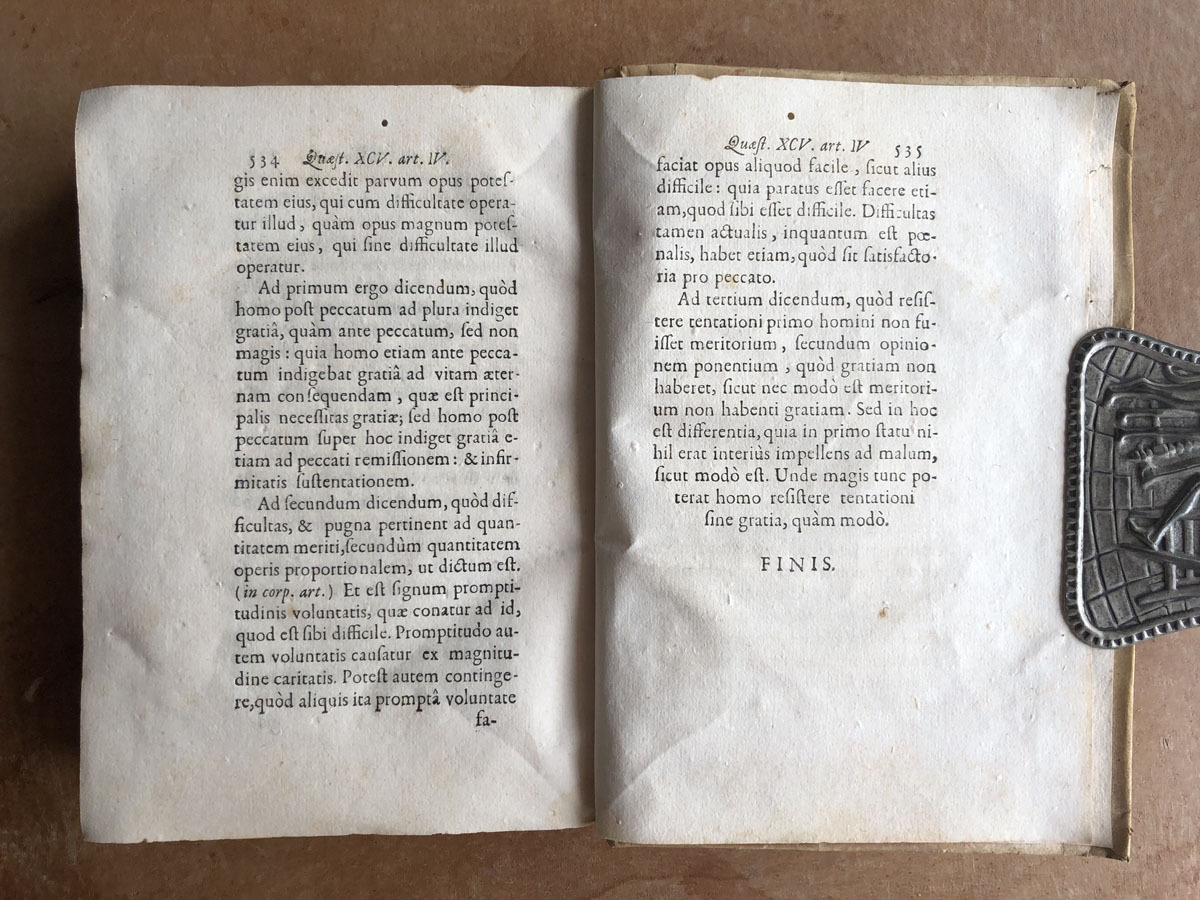 534 Quæſt. XCV. art. IV.
gis enim excedit parvum opus poteſ-
tatem eius, qui cum difficultate opera-
tur illud, quàm opus magnum poteſ-
tatem eius, qui ſine difficultate illud
operatur.
Ad primum ergo dicendum, quòd
homo poſt peccatum ad plura indiget
gratiâ, quàm ante peccatum, ſed non
magis : quia homo etiam ante pecca-
tum indigebat gratiâ ad vitam æter-
nam conſequendam, quæ eſt princi-
palis neceſſitas gratiæ; ſed homo poſt
peccatum ſuper hoc indiget gratiâ e-
tiam ad peccati remiſſionem : & infir-
mitatis ſuſtentationem.
Ad ſecundum dicendum, quòd dif-
ficultas, & pugna pertinent ad quan-
titatem meriti, ſecundùm quantitatem
operis proportionalem, ut dictum eſt.
(in corp. art.) Et eſt ſignum prompti-
tudinis voluntatis, quæ conatur ad id,
quod eſt ſibi difficile. Promptitudo au-
tem voluntatis cauſatur ex magnitu-
dine caritatis. Poteſt autem continge-
re, quòd aliquis ita promptâ voluntate
fa-
Quæſt. XCV. art. IV 535
faciat opus aliquod facile, ſicut alius
difficile : quia paratus eſſet facere eti-
am, quod ſibi eſſet difficile. Difficultas
tamen actualis, inquantum eſt pœ-
nalis, habet etiam, quòd ſit ſatisfacto-
ria pro peccato.
Ad tertium dicendum, quòd reſiſ-
tere tentationi primo homini non fu-
iſſet meritorium, ſecundum opinio-
nem ponentium, quòd gratiam non
haberet, ſicut nec modò eſt meritori-
um non habenti gratiam. Sed in hoc
eſt differentia, quia in primo ſtatu ni-
hil erat interiùs impellens ad malum,
ſicut modò eſt. Unde magis tunc po-
terat homo reſiſtere tentationi
ſine gratia, quàm modò.
FINIS.